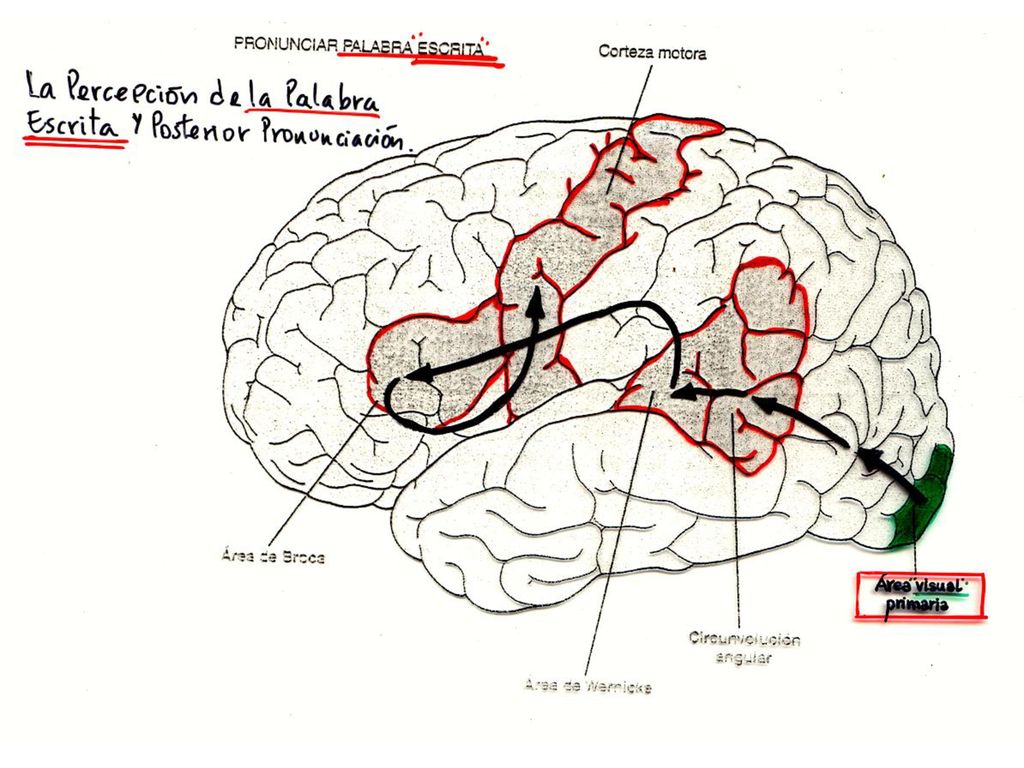 PRONUNCIAR PALABRA "ESCRITA"
Corteza motora
La Percepción de la Palabra
Escrita y Posterior Pronunciación.
Área de Broca
Area "visual"
primaria
Circunvolución
angular
Área de Wernicke